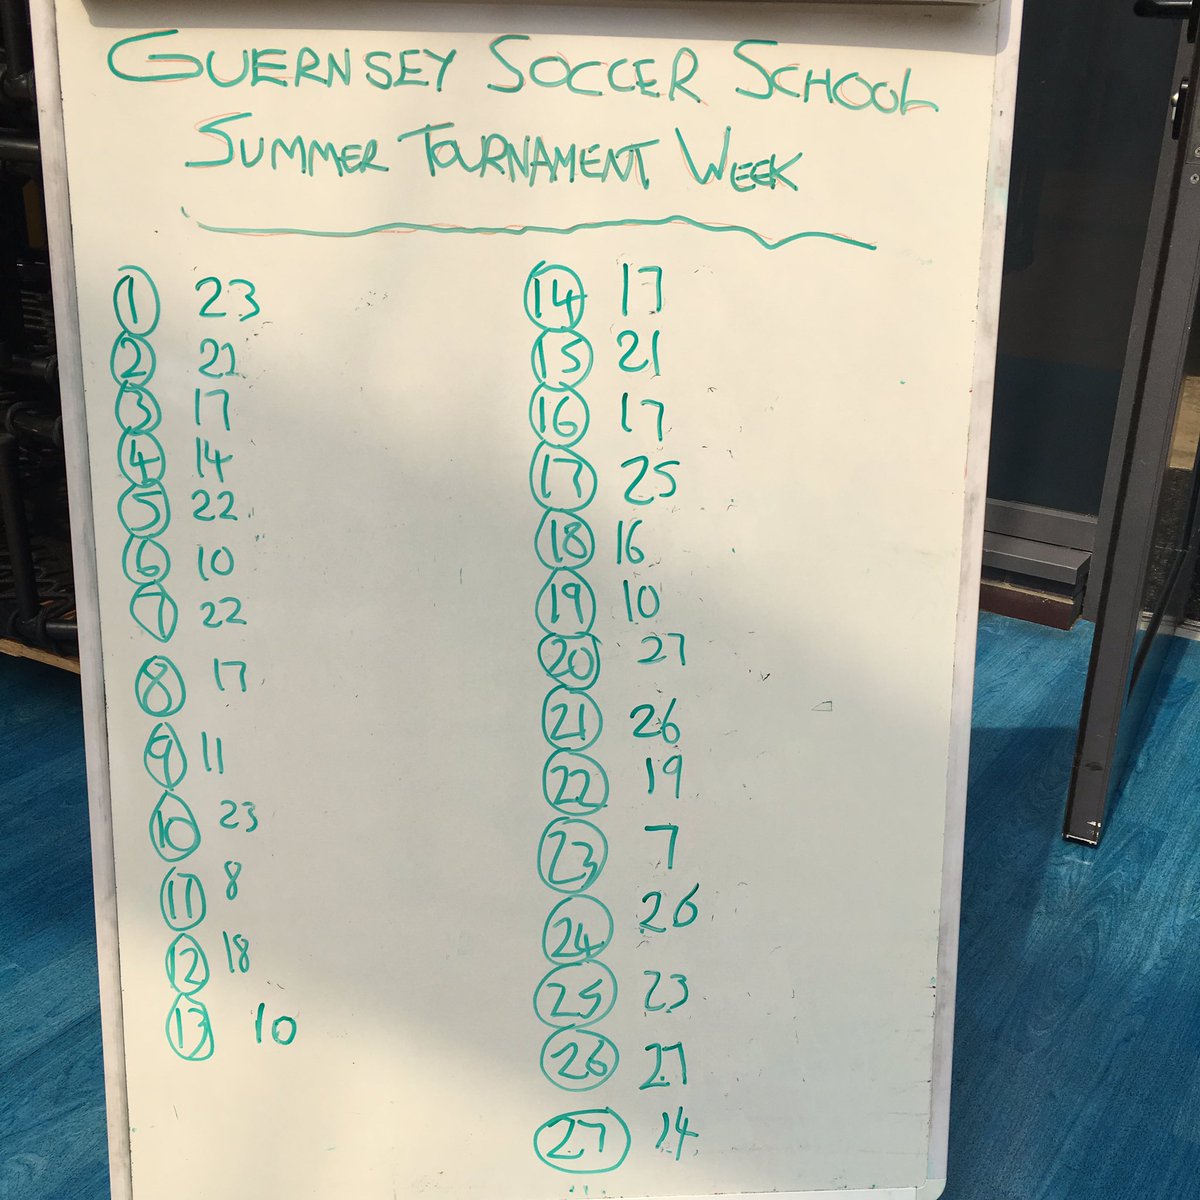 GUERNSEY SOCCER SCHOOL
SUMMER TOURNAMENT WEEK
1 23
2 21
3 17
4 14
5 22
6 10
7 22
8 17
9 11
10 23
11 8
12 18
13 10
14 17
15 21
16 17
17 25
18 16
19 10
20 27
21 26
22 19
23 7
24 26
25 23
26 27
27 14